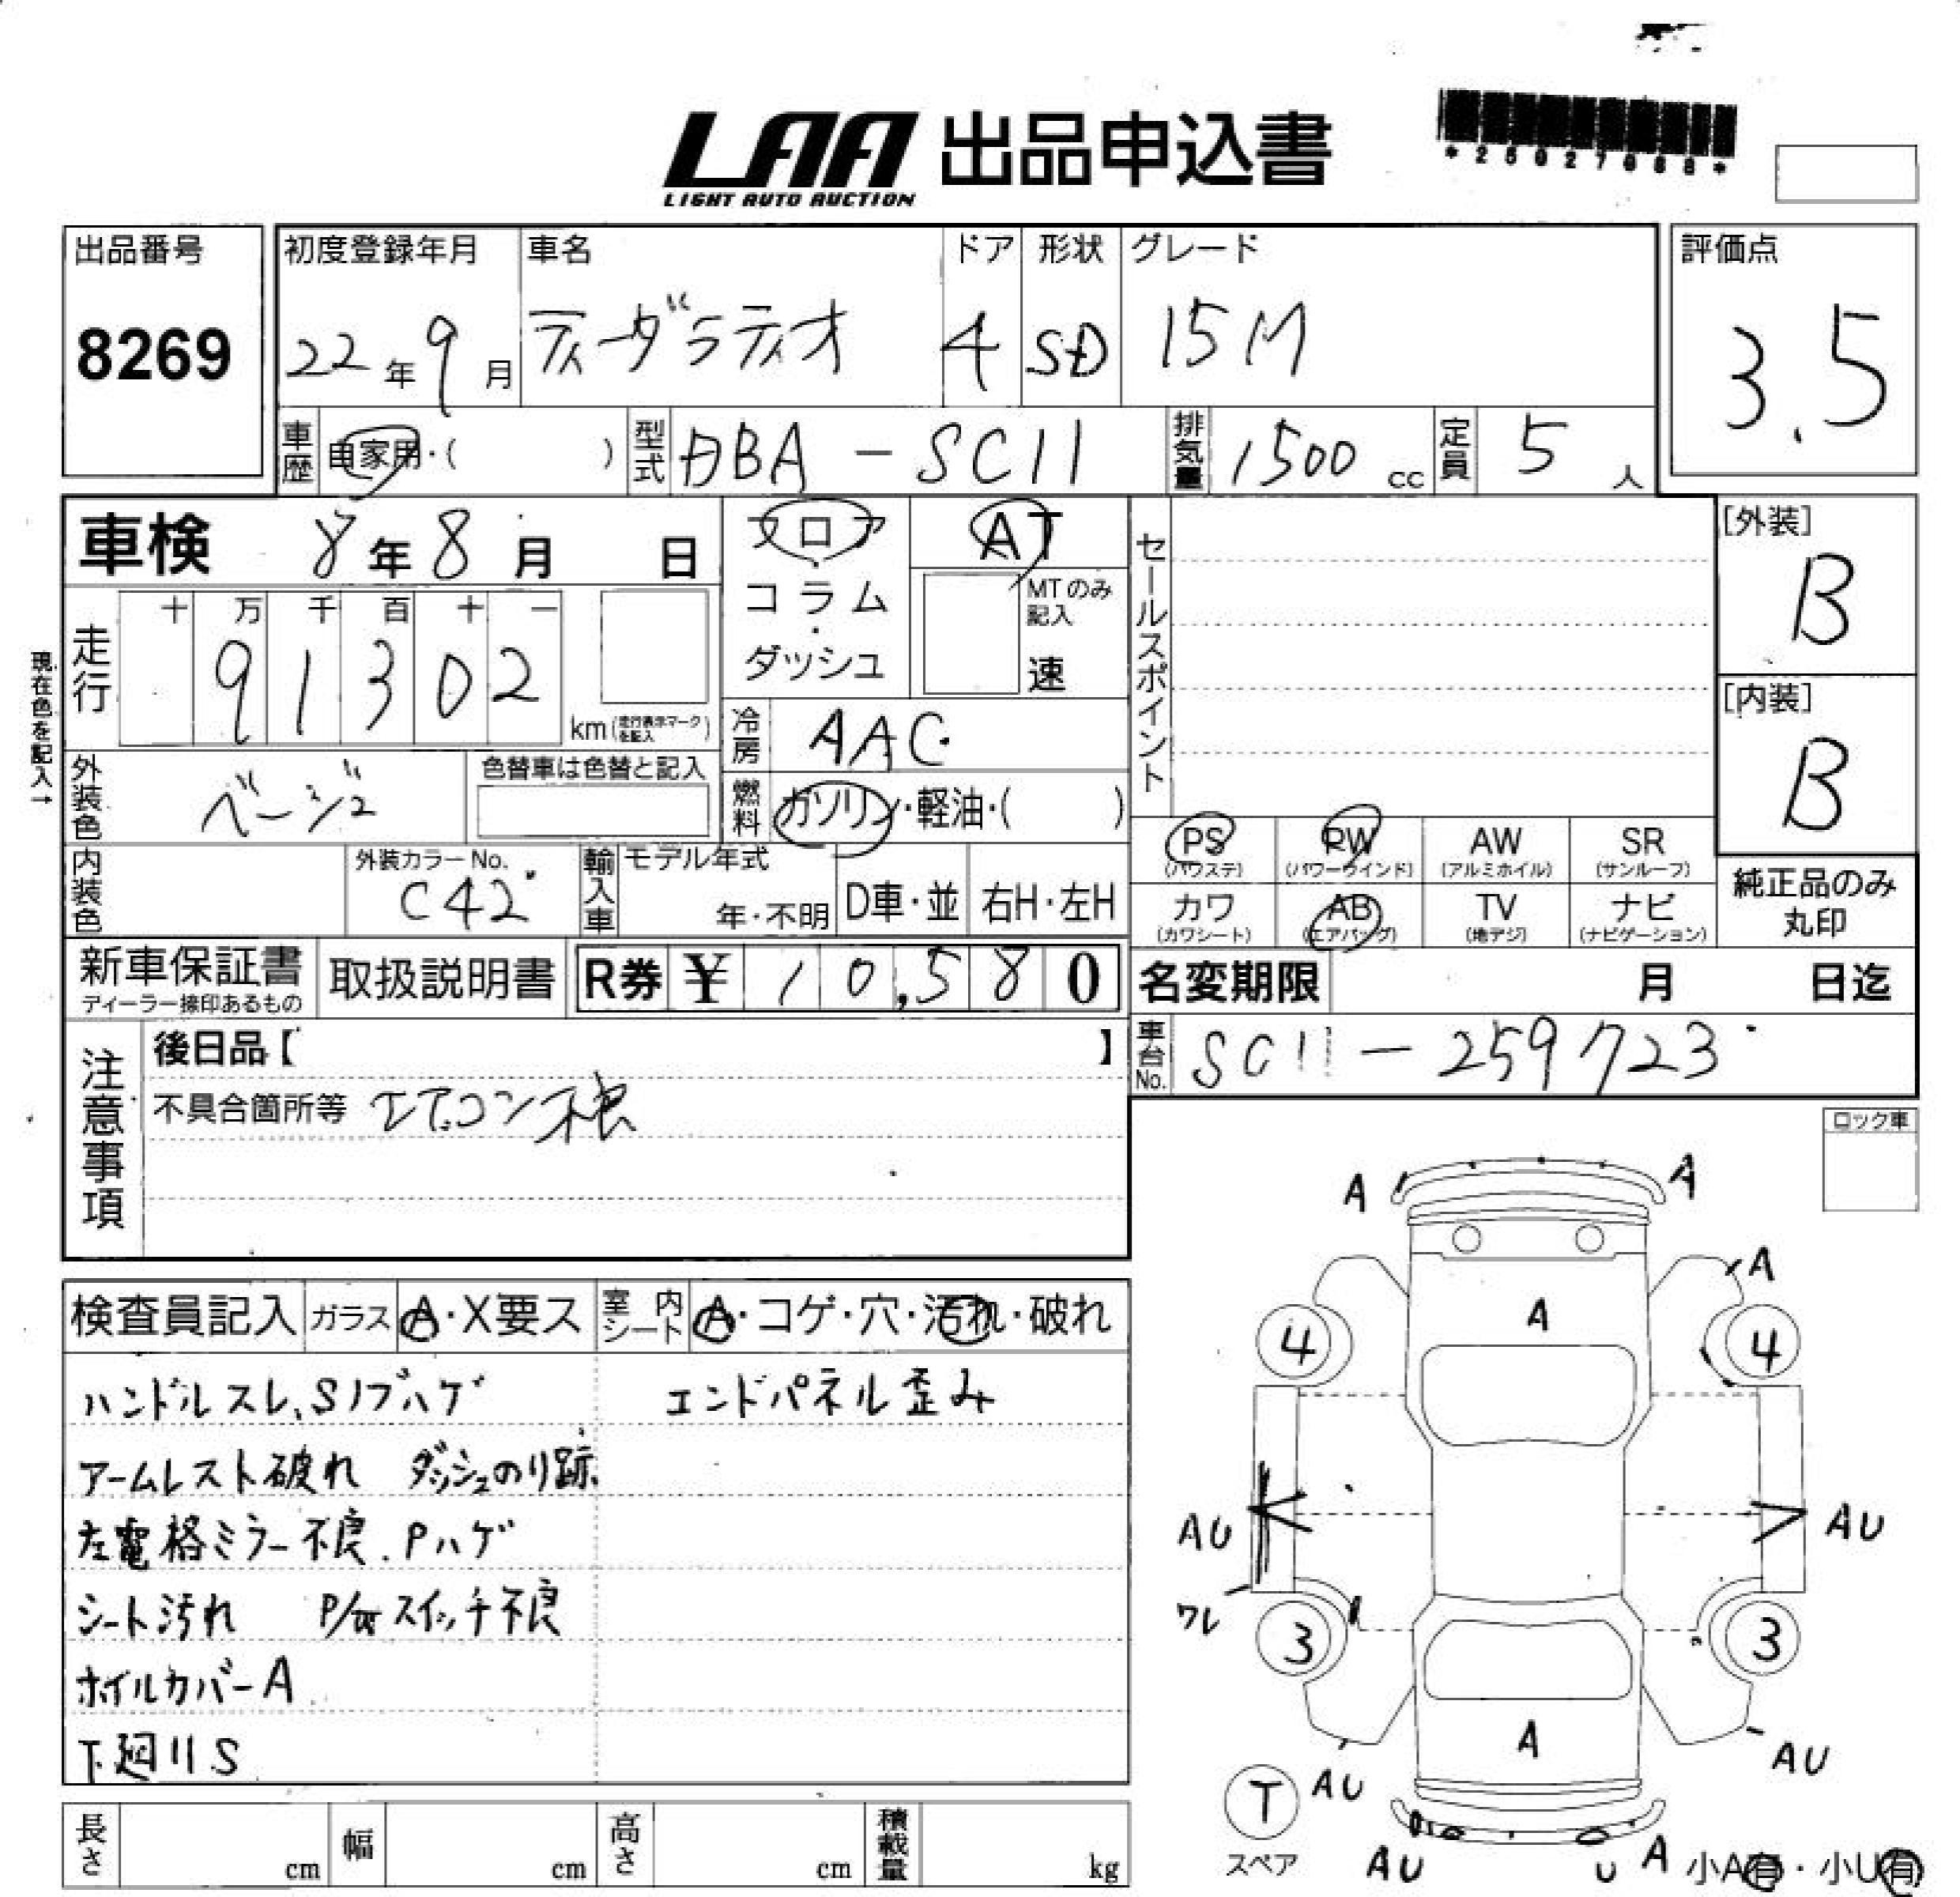 LAA 出品申込書
LIGHT AUTO AUCTION
出品番号
8269
初度登録年月 車名 ドア 形状 グレード
22年9月 ティーダラティオ 4 SD 15M
評価点
3.5
車歴 自家用・( ) 型式 DBA-SC11 排気量 1500cc 定員 5人
車検 8年8月 日
フロア・コラム・ダッシュ
AT
MTのみ記入
速
セールスポイント
[外装]
B
[内装]
B
現在色を記入→
走行 十 万 千 百 十 一
91302
km(走行表示マークを記入)
冷房 AAC
外装色 ベージュ
色替車は色替と記入
燃料 ガソリン・軽油・( )
内装色
外装カラーNo.
C42
輸入車 モデル年式
年・不明 D車・並 右H・左H
PS (パワステ) PW (パワーウインド) AW (アルミホイル) SR (サンルーフ)
カワ (カワシート) AB (エアバッグ) TV (地デジ) ナビ (ナビゲーション)
純正品のみ丸印
新車保証書
ディーラー捺印あるもの
取扱説明書
R券 ¥ 10,580
名変期限 月 日迄
車台No. SC11-259723
注意事項
後日品【 】
不具合箇所等 エアコン不良
ロック車
検査員記入 ガラス A・X要ス 室内シート A・コゲ・穴・汚れ・破れ
ハンドルスレ、Sノブハゲ エンドパネル歪み
アームレスト破れ ダッシュのり跡
左電格ミラー不良.Pハゲ
シート汚れ P/W スイッチ不良
ホイルカバーA
下廻りS
A A
A
A
4 4
AU AU
ワレ
3 3
A
AU AU
T
スペア
AU U A
小A有・小U有
長さ cm 幅 cm 高さ cm 積載量 kg